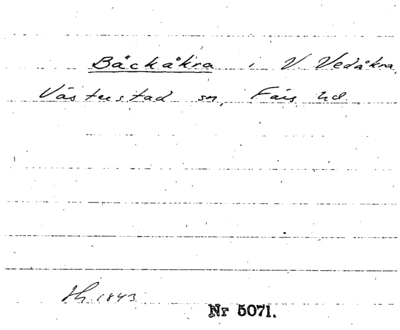 Båckåkra i V Vedåkra,
Västerstad sn, Färs hd
1843
Nr 5071.